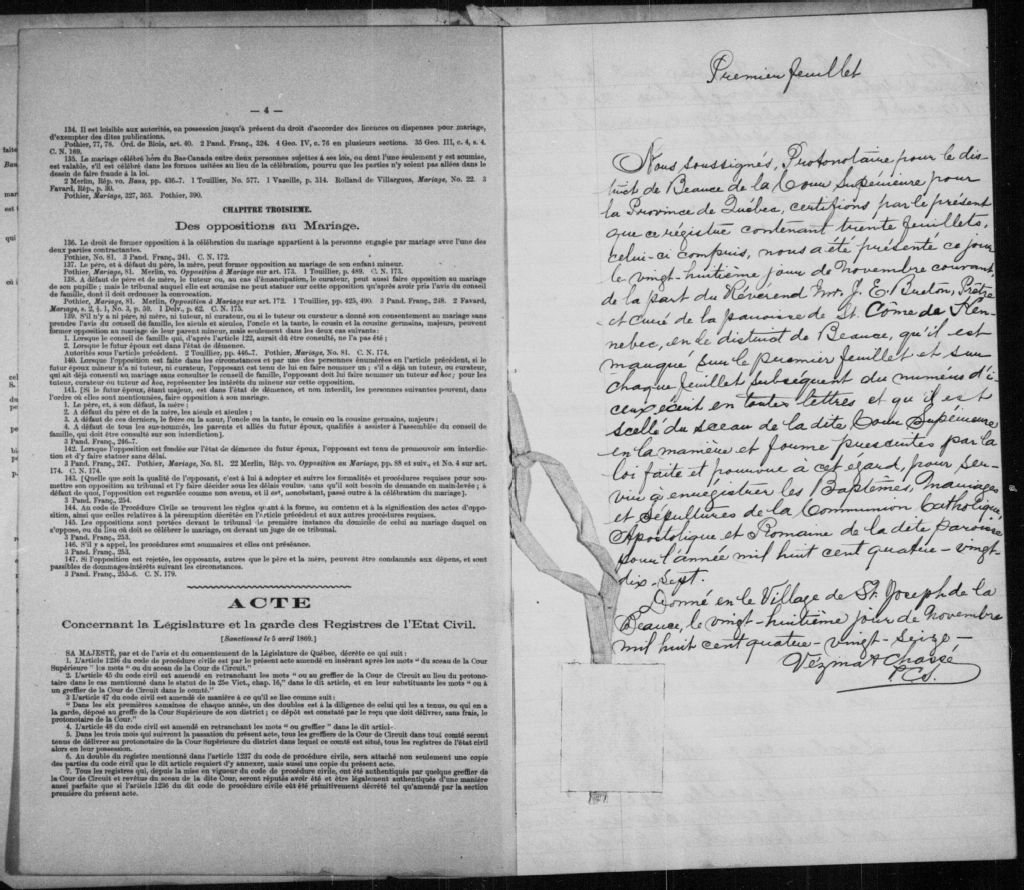 — 4 —
134. Il est loisible aux autorités, en possession jusqu'à présent du droit d'accorder des licences ou dispenses pour mariage,
d'exempter des dites publications.
Pothier, 77, 78. Ord. de Blois, art. 40. 2 Pand. Franç., 324. 4 Geo. IV, c. 76 en plusieurs sections. 35 Geo. III, c. 4, s. 4.
C. N. 169.
135. Le mariage célébré hors du Bas-Canada entre deux personnes sujettes à ses lois, ou dont l'une seulement y est soumise,
est valable, s'il est célébré dans les formes usitées au lieu de la célébration, pourvu que les parties n'y soient pas allées dans le
dessein de faire fraude à la loi.
2 Merlin, Rép. vo. Bans, pp. 436-7. 1 Touillier, No. 577. 1 Vazeille, p. 314. Rolland de Villargues, Mariage, No. 22. 3
Favard, Rép., p. 30.
Pothier, Mariage, 327, 363. Pothier, 390.
CHAPITRE TROISIEME.
Des oppositions au Mariage.
136. Le droit de former opposition à la célébration du mariage appartient à la personne engagée par mariage avec l'une des
deux parties contractantes.
Pothier, No. 81. 3 Pand. Franç., 241. C. N. 172.
137. Le père, et à défaut du père, la mère, peut former opposition au mariage de son enfant mineur.
Pothier, Mariage, 81. Merlin, vo. Opposition à Mariage sur art. 173. 1 Touillier, p. 489. C. N. 173.
138. A défaut de père et de mère, le tuteur ou, au cas d'émancipation, le curateur, peut aussi faire opposition au mariage
de son pupille; mais le tribunal auquel elle est soumise ne peut statuer sur cette opposition qu'après avoir pris l'avis du conseil
de famille, dont il doit ordonner la convocation.
Pothier, Mariage, 81. Merlin, Opposition à Mariage sur art. 172. 1 Touillier, pp. 425, 490. 3 Pand. Franç., 248. 2 Favard,
Mariage, s. 2, § 1, No. 3, p. 59. 1 Delv., p. 62. C. N. 175.
139. S'il n'y a ni père, ni mère, ni tuteur, ni curateur, ou si le tuteur ou curateur a donné son consentement au mariage sans
prendre l'avis du conseil de famille, les aieuls et aieules, l'oncle et la tante, le cousin et la cousine germains, majeurs, peuvent
former opposition au mariage de leur parent mineur, mais seulement dans les deux cas suivants:
1. Lorsque le conseil de famille qui, d'après l'article 122, aurait dû être consulté, ne l'a pas été;
2. Lorsque le futur époux est dans l'état de démence.
Autorités sous l'article précédent. 2 Touillier, pp. 446-7. Pothier, Mariage, No. 81. C. N. 174.
140. Lorsque l'opposition est faite dans les circonstances et par une des personnes énoncées en l'article précédent, si le
futur époux mineur n'a ni tuteur, ni curateur, l'opposant est tenu de lui en faire nommer un; s'il a déjà un tuteur, ou curateur,
qui ait déjà consenti au mariage sans consulter le conseil de famille, l'opposant doit lui faire nommer un tuteur ad hoc; pour les
tuteur, curateur ou tuteur ad hoc, représenter les intérêts du mineur sur cette opposition.
141. [Si le futur époux, étant majeur, est dans l'état de démence, et non interdit, les personnes suivantes peuvent, dans
l'ordre où elles sont mentionnées, faire opposition à son mariage.
1. Le père, et, à son défaut, la mère;
2. A défaut du père et de la mère, les aieuls et aieules;
3. A défaut de ces derniers, le frère ou la sœur, l'oncle ou la tante, le cousin ou la cousine germains, majeurs;
4. A défaut de tous les sus-nommés, les parents et alliés du futur époux, qualifiés à assister à l'assemblée du conseil de
famille, qui doit être consulté sur son interdiction].
3 Pand. Franç., 246-7.
142. Lorsque l'opposition est fondée sur l'état de démence du futur époux, l'opposant est tenu de promouvoir son interdic-
tion et d'y faire statuer sans délai.
3 Pand. Franç., 247. Pothier, Mariage, No. 81. 22 Merlin, Rép. vo. Opposition au Mariage, pp. 88 et suiv., et No. 4 sur art.
174. C. N. 174.
143. [Quelle que soit la qualité de l'opposant, c'est à lui à adopter et suivre les formalités et procédures requises pour sou-
mettre son opposition au tribunal et l'y faire décider sous les délais voulus, sans qu'il soit besoin de demande en main-levée; à
défaut de quoi, l'opposition est regardée comme non avenu, et il est, nonobstant, passé outre à la célébration du mariage].
3 Pand. Franç., 254.
144. Au code de Procédure Civile se trouvent les règles quant à la forme, au contenu et à la signification des actes d'oppo-
sition, ainsi que celles relatives à la péremption décrétée en l'article précédent et aux autres procédures requises.
145. Les oppositions sont portées devant le tribunal de première instance du domicile de celui au mariage duquel on
s'oppose, ou du lieu où doit se célébrer le mariage, ou devant un juge de ce tribunal.
3 Pand. Franç., 253.
146. S'il y a appel, les procédures sont sommaires et elles ont préséance.
3 Pand. Franç., 253.
147. Si l'opposition est rejetée, les opposants, autres que le père et la mère, peuvent être condamnés aux dépens, et sont
passibles de dommages-intérêts suivant les circonstances.
3 Pand. Franç., 255-6. C. N. 179.
ACTE
Concernant la Législature et la garde des Registres de l'Etat Civil.
[Sanctionné le 5 avril 1869.]
SA MAJESTÉ, par et de l'avis et du consentement de la Législature de Québec, décrète ce qui suit:
1. L'article 1236 du code de procédure civile est par le présent acte amendé en insérant après les mots "du sceau de la Cour
Supérieure" les mots "ou du sceau de la Cour de Circuit."
2. L'article 45 du code civil est amendé en retranchant les mots "ou au greffier de la Cour de Circuit au lieu du protono-
taire dans le cas mentionné dans le statut de la 25e Vict., chap. 16," dans le dit article, et en leur substituants les mots "ou à
un greffier de la Cour de Circuit dans le comté."
3 L'article 47 du code civil est amendé de manière à ce qu'il se lise comme suit:
"Dans les six premières semaines de chaque année, un des doubles est à la diligence de celui qui les a tenus, ou qui en a
la garde, déposé au greffe de la Cour Supérieure de son district; ce dépôt est constaté par le reçu que doit délivrer, sans frais, le
protonotaire de la Cour."
4. L'article 48 du code civil est amendé en retranchant les mots "ou greffier" dans le dit article.
5. Dans les trois mois qui suivront la passation du présent acte, tous les greffiers de la Cour de Circuit dans tout comté seront
tenus de délivrer au protonotaire de la Cour Supérieure du district dans lequel ce comté est situé, tous les registres de l'état civil
alors en leur possession.
6. Au double du registre mentionné dans l'article 1237 du code de procédure civile, sera attaché non seulement une copie
des parties du code civil que le dit article requiert d'y annexer, mais aussi une copie du présent acte.
7. Tous les registres qui, depuis la mise en vigueur du code de procédure civile, ont été authentiqués par quelque greffier de
la Cour de Circuit et revêtus du sceau de la dite Cour, seront réputés avoir été et être légalement authentiqués d'une manière
aussi parfaite que si l'article 1236 du dit code de procédure civile eût été primitivement décrété tel qu'amendé par la section
première du présent acte.
Premier feuillet
Nous soussignés, Protonotaire pour le dis-
trict de Beauce de la Cour Supérieure pour
la Province de Québec, certifions par le présent
que ce registre contenant trente feuillets,
celui-ci compris, nous a été présenté ce jour
le vingt-huitième jour de Novembre courant
de la part du Révérend Mr. J. E. Breton, Prêtre
et curé de la paroisse de St. Côme de Ken-
nebec, en le district de Beauce, qu'il est
marqué sur le premier feuillet et sur
chaque feuillet subséquent du numéro d'i-
ceux écrit en toutes lettres et qu'il est
scellé du sceau de la dite Cour Supérieure
en la manière et forme prescrites par la
loi faite et pourvue à cet égard, pour ser-
vir à enrégistrer les Baptêmes, mariages
et sépultures de la Communion Catholique,
Apostolique et Romaine de la dite paroisse
pour l'année mil huit cent quatre-vingt-
dix-sept.
Donné en le Village de St. Joseph de la
Beauce, le vingt-huitième jour de Novembre
mil huit cent quatre-vingt-seize-
Vézina & Chassé